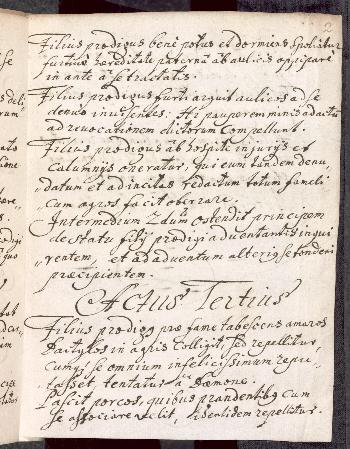 Filius prodigus bene potus et dormiens, spoliatur
furtive hæreditate paterna ab aulicis oppipare
in ante a se tractatis.
Filius prodigus furti arguit aulicos ad se
denuo invisentes. At pauperem minis adactum
ad revocationem dictorum compellunt.
Filius prodigus ab hospite injurijs et
calumnijs oneratur, qui eum tandem denu
datum et ad incitas redactum totum fameli
cum agros facit oberrare.
Intermedium 2dum ostendit principem
de statu filij prodigi adventantis inqui
rentem, et ad adventum alterius se
præcipientem.
Actus Tertius
Filius prodigg præ fame tabescens amaros
bactylos in agris colligit, sed repellitur,
cumq; se omnium infelicissimum repu
tasset, tentatur a Dæmone.
Pascit porcos, quibus prandentibg cum
se associare velit, identidem repellitur.